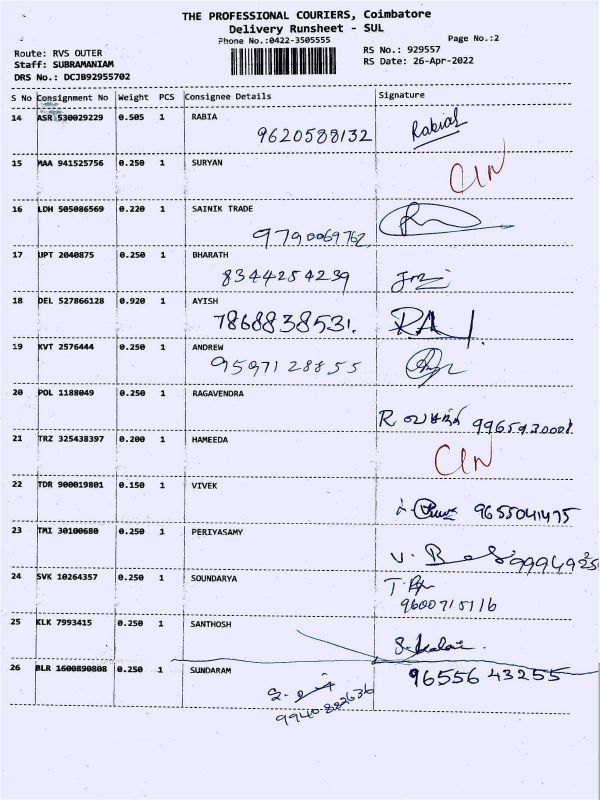 THE PROFESSIONAL COURIERS, Coimbatore
Delivery Runsheet - SUL
Phone No.:0422-3505555
Page No.:2
Route: RVS OUTER
RS No.: 929557
Staff: SUBRAMANIAM
RS Date: 26-Apr-2022
DRS No.: DCJB92955702
S No Consignment No Weight PCS Consignee Details Signature
14 ASR 530029229 0.505 1 RABIA
9620588132 Rabia
15 MAA 941525756 0.250 1 SURYAN
CIN
16 LDH 505086569 0.220 1 SAINIK TRADE
9790069762
17 UPT 2040875 0.250 1 BHARATH
8344254239
18 DEL 527866128 0.920 1 AYISH
7868838531.
19 KVT 2576444 0.250 1 ANDREW
9597128855
20 POL 1188049 0.250 1 RAGAVENDRA
R
21 TRZ 325438397 0.200 1 HAMEEDA
CIN
22 TDR 900019801 0.150 1 VIVEK
9655041475
23 TMI 30100680 0.250 1 PERIYASAMY
V.
24 SVK 10264357 0.250 1 SOUNDARYA
9600715116
25 KLK 7993415 0.250 1 SANTHOSH
26 BLR 1600890808 0.250 1 SUNDARAM
9655643255